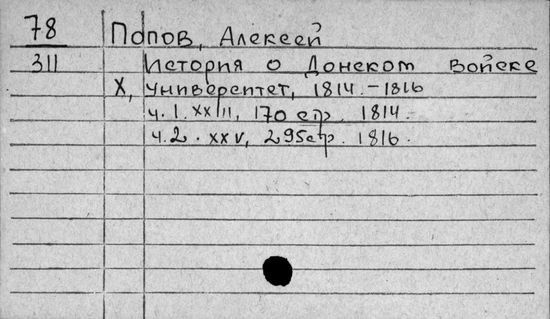 78 Попов, Алексей
311 История о Донском Войске
Х, Университет, 1814.-1816
ч. 1. XXIII, 170 стр. 1814.
ч. 2. XXV, 295стр. 1816.